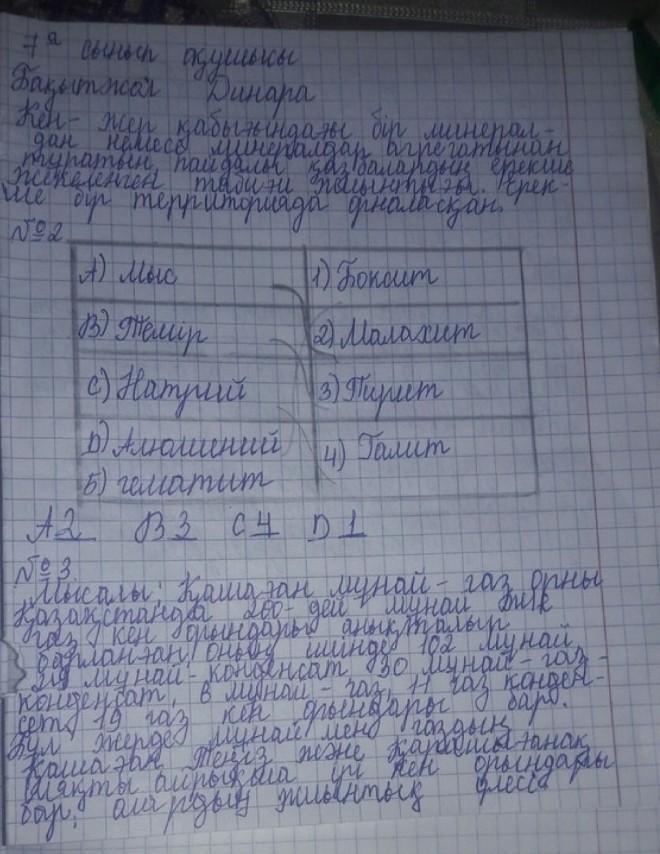 7"а" сынып оқушысы
Бақытжан Динара
Кен- жер қабығындағы бір минерал-
дан немесе минералдар агрегатынан
тұратын пайдалы қазбалардың ерекше
жекеленген табиғи жиынтығы. Ерек-
ше бір территорияда орналасқан.
№2
А) Мыс 1) Боксит
В) Темір 2) Малахит
С) Натрий 3) Пирит
D) Алюминий 4) Галит
Б) гематит
А2 В3 С4 D1
№3
Мысалы: Қашаған мұнай-газ орны
Қазақстанда 200-дей мұнай
газ кен орындары анықталып
барланған оның ішінде 102 мұнай,
мұнай-конденсат 30 мұнай-газ-
конденсат, 6 мұнай-газ, 11 газ конден-
сат, 19 газ кен орындары бар.
Бұл жерде мұнай мен газдың
Қашаған Теңіз және Қарашығанақ
сияқты айрықша ірі кен орындары
бар, олардың жиынтық үлесі